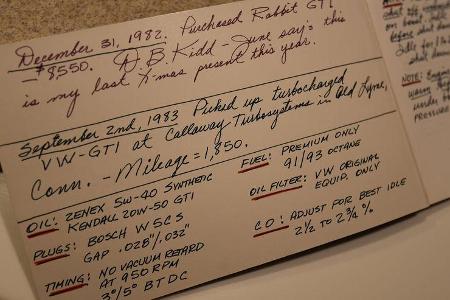 December 31, 1982. Purchased Rabbit GTI
- $8550. D.B. Kidd - June say's this
is my last X-mas present this year.
September 2nd, 1983 Picked up turbocharged
VW-GTI at Callaway Turbosystems in Old Lyme,
Conn. - Mileage = 1,850.
OIL: ZENEX 5W-40 SYNTHETIC
KENDALL 20W-50 GTI
PLUGS: BOSCH W5CS
GAP .028"/.032"
TIMING: NO VACUUM RETARD
AT 950 RPM
3°/5° BTDC
FUEL: PREMIUM ONLY
91/93 OCTANE
OIL FILTER: VW ORIGINAL
EQUIP. ONLY
CO: ADJUST FOR BEST IDLE
2½ TO 2¾ %
NOTE: Engine
warm
under
pressure